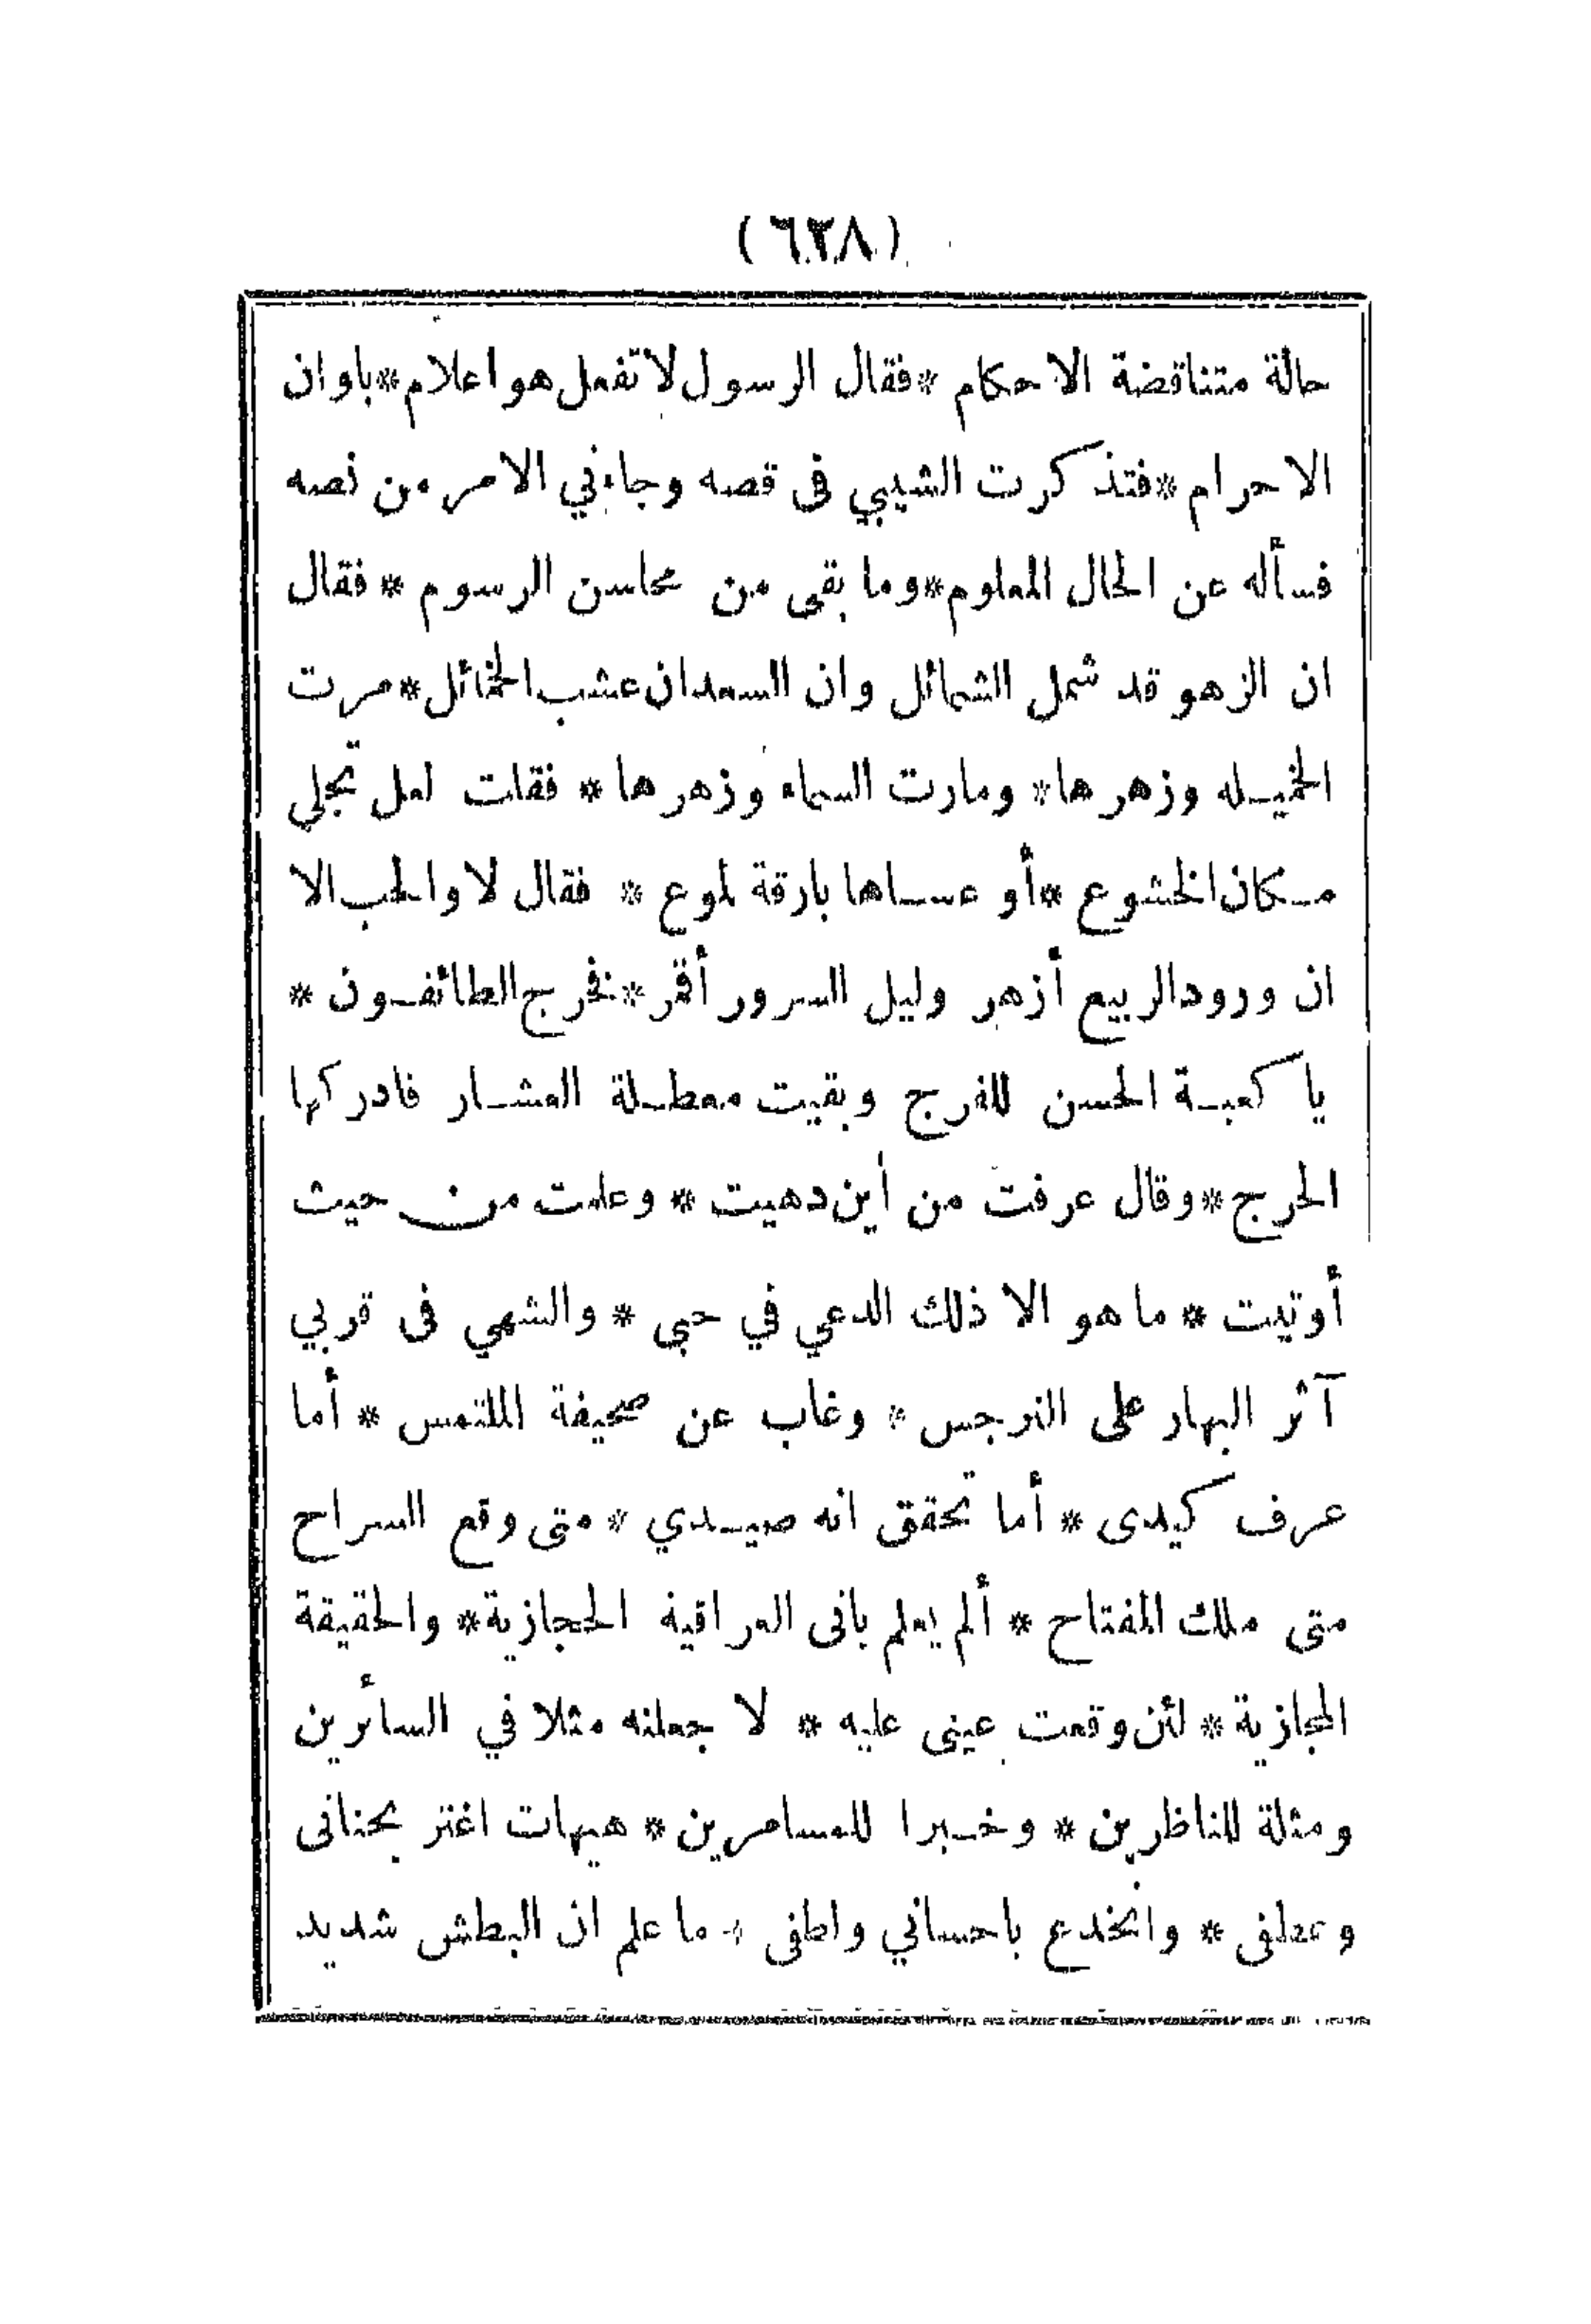 (٦٣٨)
حالة متناقضة الاحكام *فقال الرسول لا تفعل هو اعلام*باوان
الاحرام*فتذكرت الشيبي فى قصه وجاءني الامر من نصه
فسأله عن الحال المعلوم*وما بقى من محاسن الرسوم * فقال
ان الزهو قد شمل الشمائل وان السعدان عشب الخمائل*مرت
الخميله وزهرها* ومارت السماء وزهرها* فقلت لعل تجلي
مكان الخشوع *أو عساها بارقة لموع * فقال لا والحب الا
ان ورود الربيع أزهر وليل السرور أقمر*فخرج الطائفون *
يا كعبة الحسن للفرج وبقيت معطلة العشار فادركها
الحرج*وقال عرفت من أين دهيت * وعلمت من حيث
أوتيت * ما هو الا ذلك الدعي في حبى * والشهي فى قربي
آثر البهار على النرجس * وغاب عن صحيفة الملتمس * أما
عرف كيدى * أما تحقق انه صيدي * متى وقع السراح
متى ملك المفتاح * ألم يعلم بانى العراقية الحجازية* والحقيقة
المجازية* لئن وقعت عينى عليه * لا جعلنه مثلا في السائرين
ومثلة للناظرين * وخبرا للمسامرين* هيهات اغتر بحنانى
وعطفى * وانخدع باحساني ولطفى * ما علم ان البطش شديد